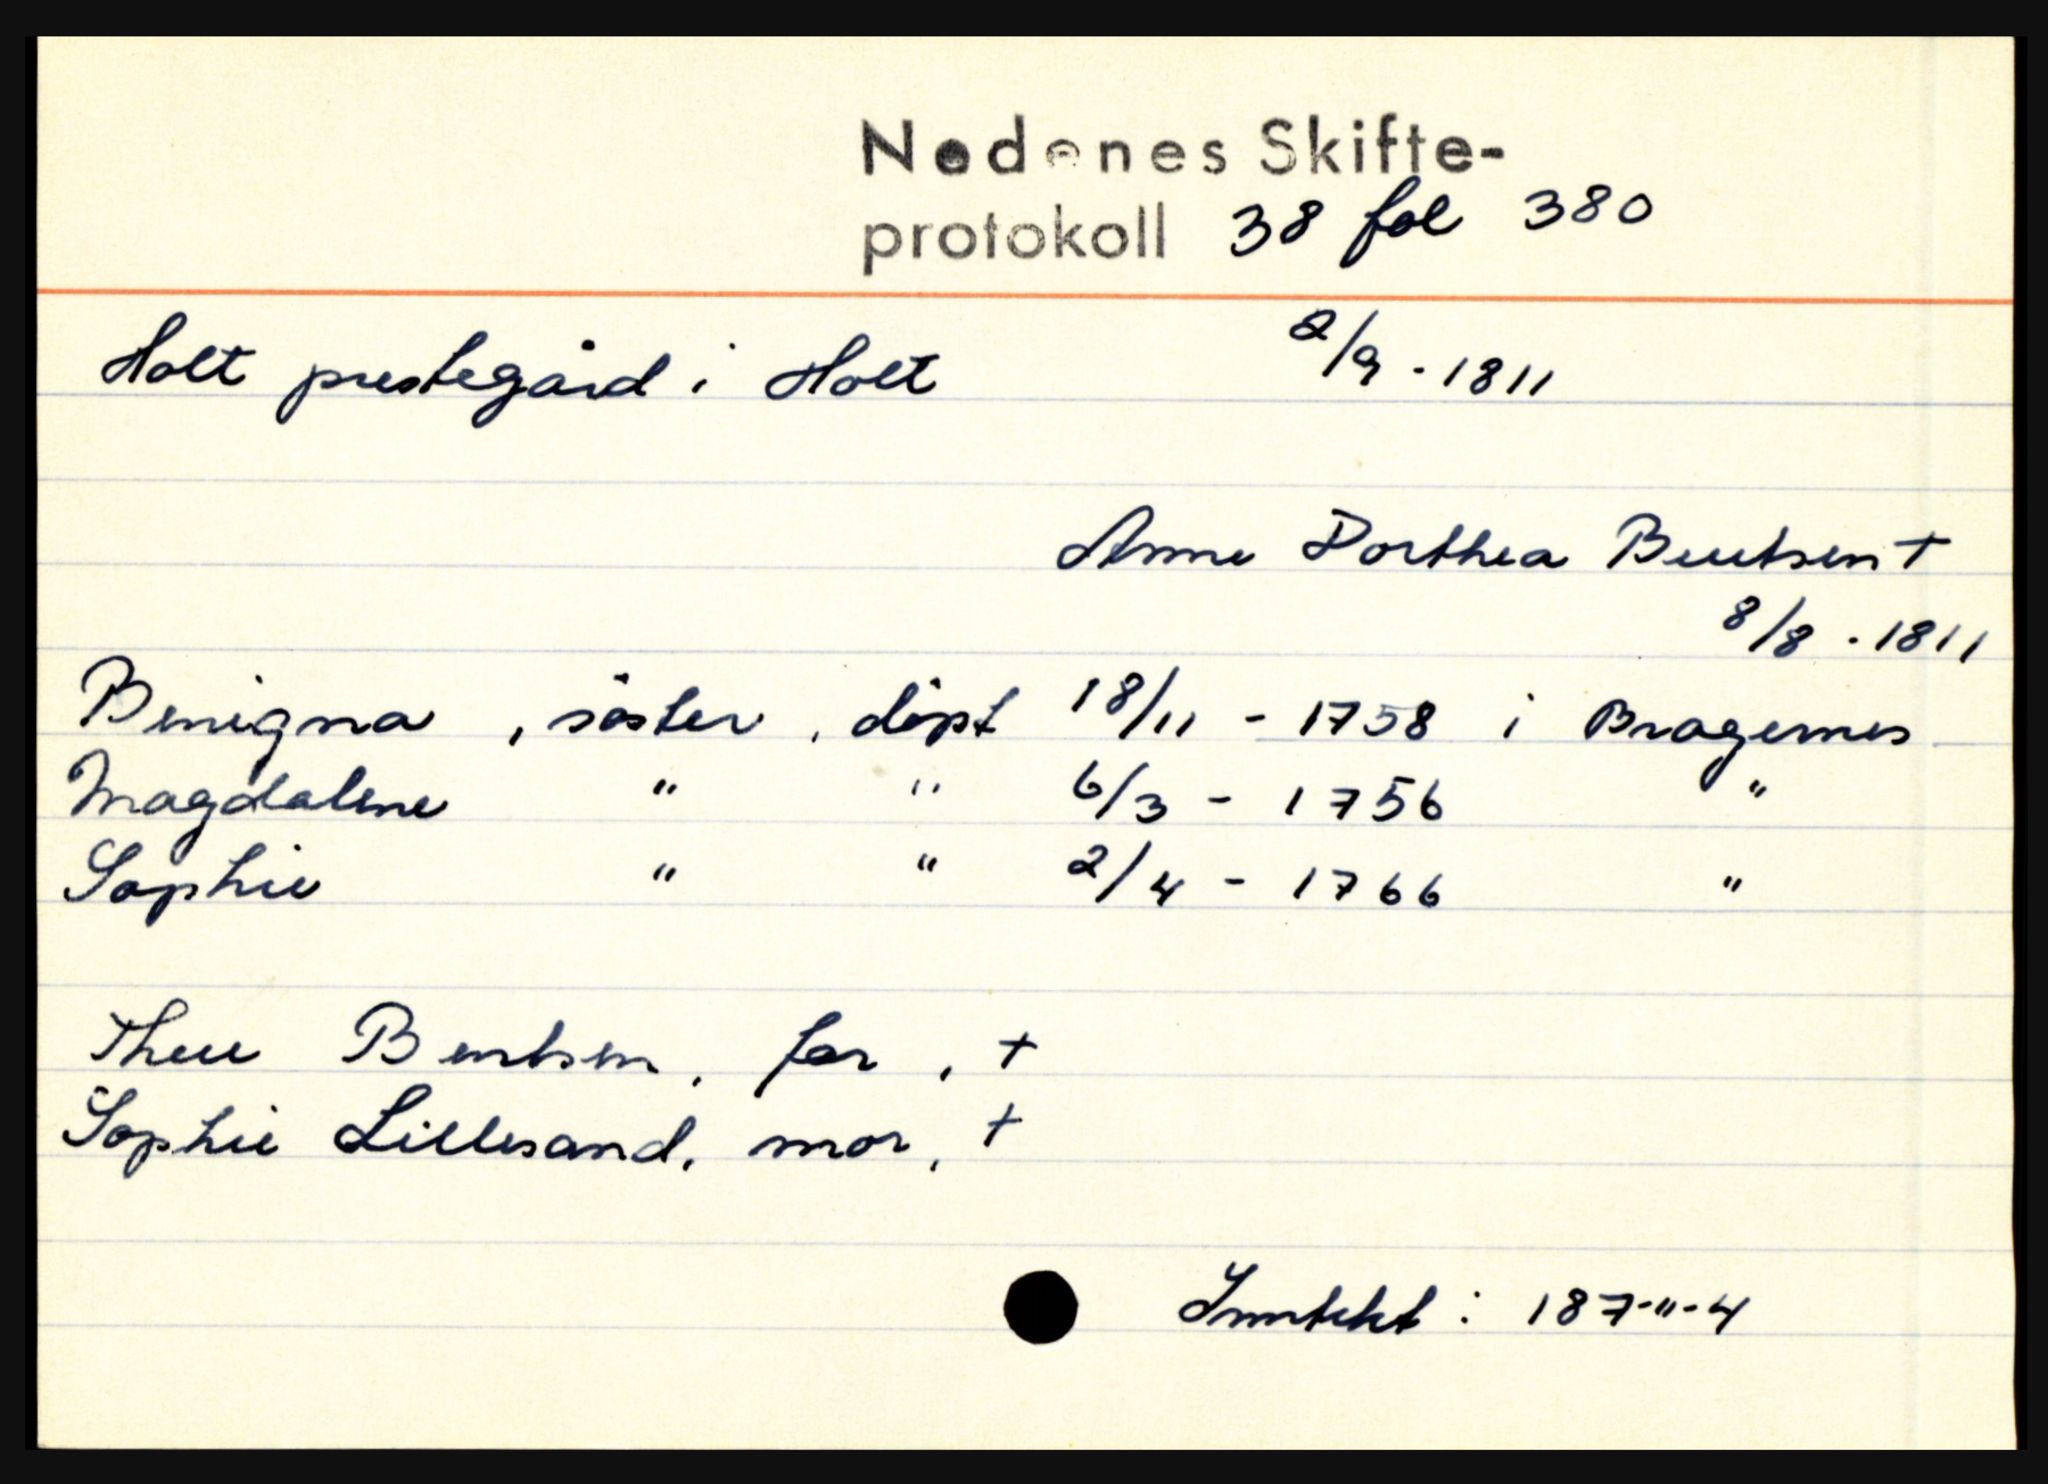 Nedenes Skifte-
protokoll 38 fol 380
Holt prestegård i Holt 2/9 - 1811
Anne Dorthea Bentsen +
8/8 - 1811
Benigna, söster, döpt 18/11 - 1758 i Bragernes
Magdalene " " 6/3 - 1756 "
Sophie " " 2/4 - 1766 "
Thue Bentsen, far, +
Sophie Lillesand, mor, +
Inntekt: 187-"-4